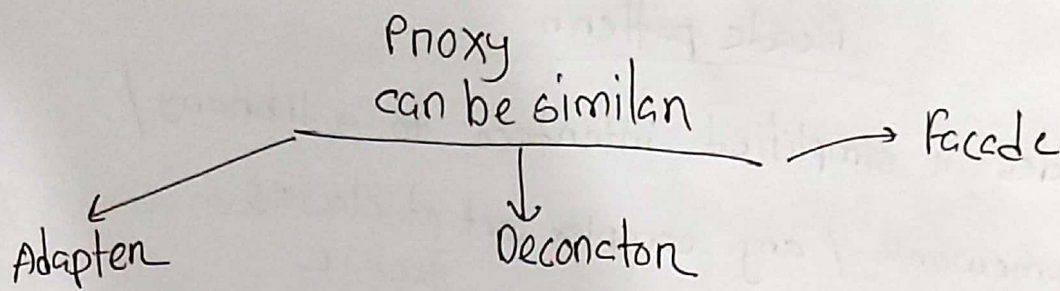 Proxy
can be similar
Facade
Adapter
Decorator